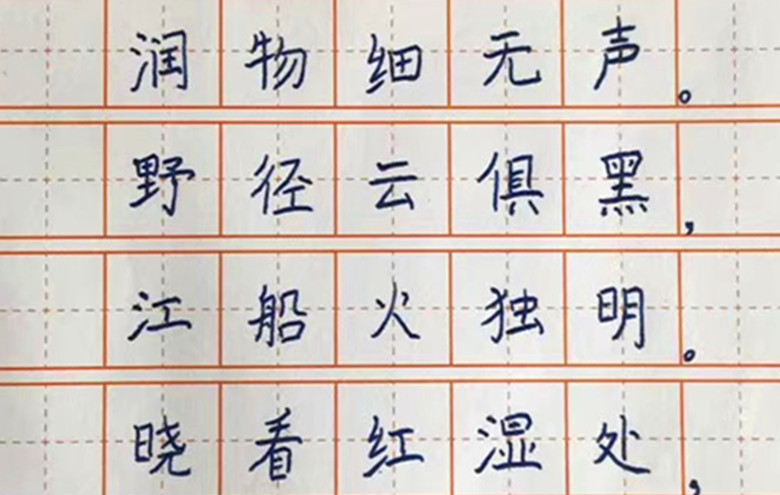 润物细无声。
野径云俱黑,
江船火独明。
晓看红湿处,